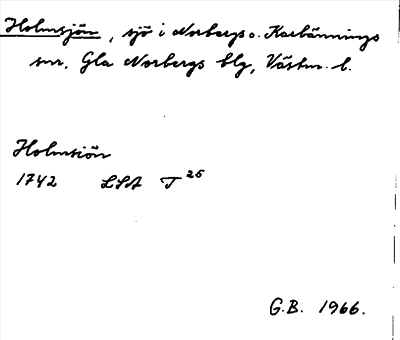 Holmsjön, sjö i Norbergs o. Karbännings
snr, Gla Norbergs blg, Västm. l.
Holmsiön
1742 LSA T 25
G.B. 1966.